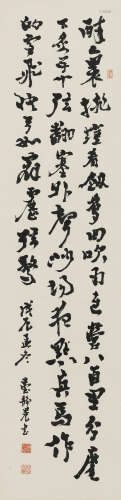 醉裏挑燈看劍夢回吹角連營八百里分麾
下炙五十弦翻塞外聲沙場秋點兵馬作
的盧飛快弓如霹靂弦驚
戊辰孟冬
臺靜農書